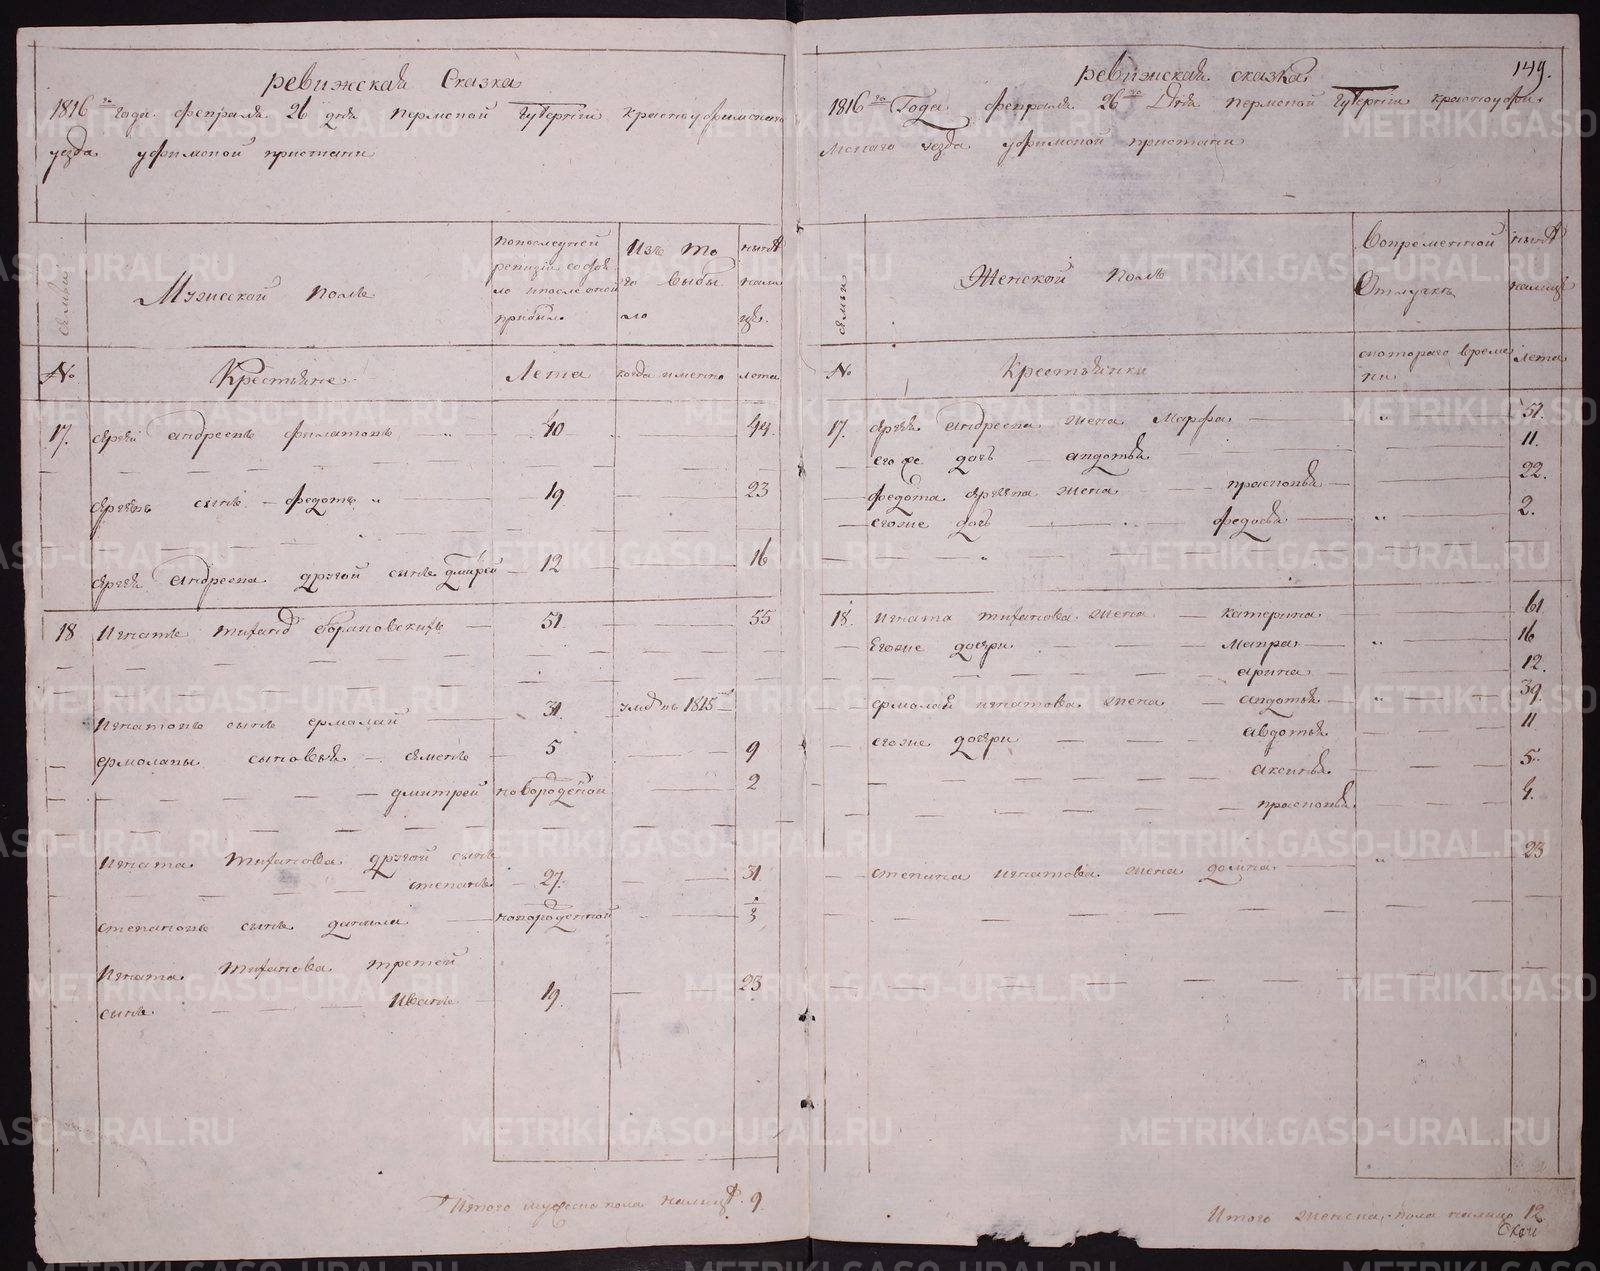 ревижская Сказка
1816 го года февраля 26 дня пермской губернии красноуфимскаго
уезда уфимской пристани
семьи
Мужеской полъ
попоследней
ревизiи состоя
ло ипослеоной
прибыло
Изъ то
го выбы
ло
нынѣ
нали
це.
№
Крестьяне
Лета
когда имянно
лета
17. Сергей андреевъ филатовъ 40 44.
Сергѣевъ сынъ федотъ 19 23
Сергея андреева другой сынъ дмитрей 12 16
18 Игнатъ тихановъ барановскихъ 51 55
Игнатовъ сынъ ермолай 31 умре въ 1815
ермолавы сыновья семенъ 5 9
дмитрей новорожденой 2
Игната тиханова другой сынъ
степанъ 27. 31
степановъ сынъ данила новорожденной 3
Игната тиханова третей
сынъ Иванъ 19. 23
Итого мужеска пола налице 9
149.
ревижская сказка
1816 го Года февраля 26 го Дня пермской губернiи красноуфи
мскаго уезда уфимской пристани
семьи
Женской полъ
Вовременной
Отлучкѣ
нынѣ
налице
№
Крестьянки
скотораго време
ни
лета
17. Сергея андреева жена Марфа 51.
его же дочь авдотья 11.
федота сергеева жена прасковья 22.
егоже дочь федосья 2.
18. Игната тиханова жена катерина 61
Егоже дочери матрена 16
арина 12.
ермолая игнатова жена авдотья 39.
егоже дочери авдотья 11
аксинья 5.
прасковья 4.
степана игнатова жена домна 23
Итого женска пола налицо 12
METRIKI.GASO-URAL.RU